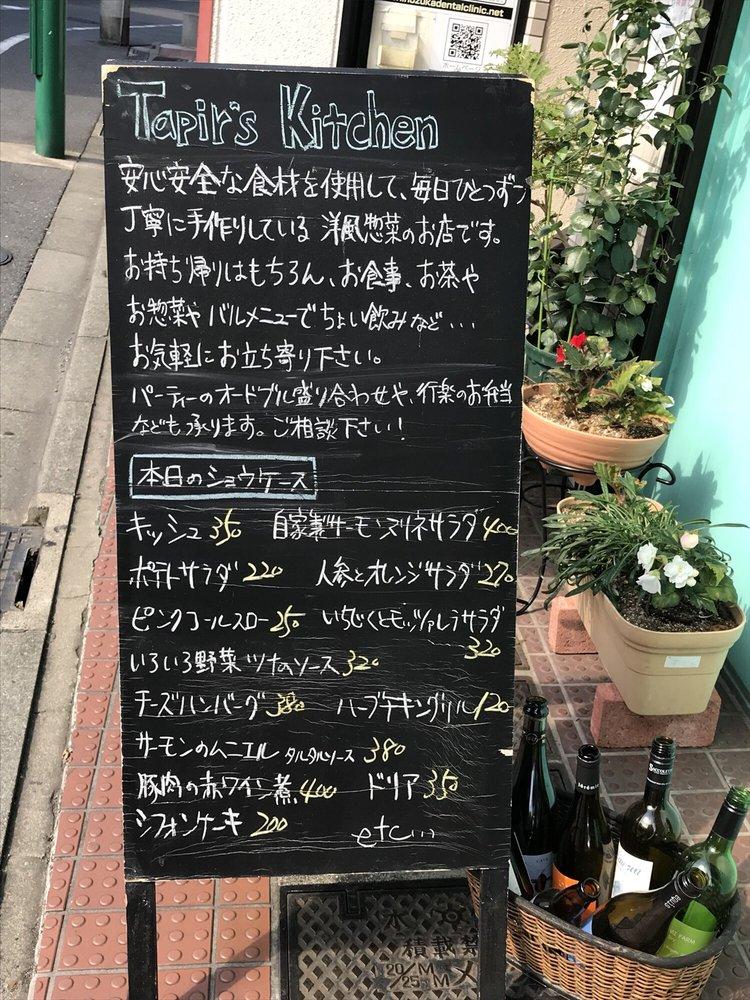 shinozukadentalclinic.net
Tapir's Kitchen
安心安全な食材を使用して、毎日ひとつずつ
丁寧に手作りしている 洋風惣菜のお店です。
お持ち帰りはもちろん、お食事、お茶や
お惣菜や バルメニューでちょい飲みなど...
お気軽にお立ち寄り下さい。
パーティーのオードブル盛り合わせや、行楽のお弁当
なども承ります。ご相談下さい!
本日のショウケース
キッシュ350 自家製サーモンマリネサラダ400
ポテトサラダ220 人参とオレンジサラダ270
ピンクコールスロー250 いちじくとモッツァレラサラダ
320
いろいろ野菜 ツナのソース320
チーズハンバーグ380 ハーブチキングリル120
サーモンのムニエル タルタルソース 380
豚肉の赤ワイン煮400 ドリア350
シフォンケーキ 200 etc...
水
積載禁
20/M
25/M